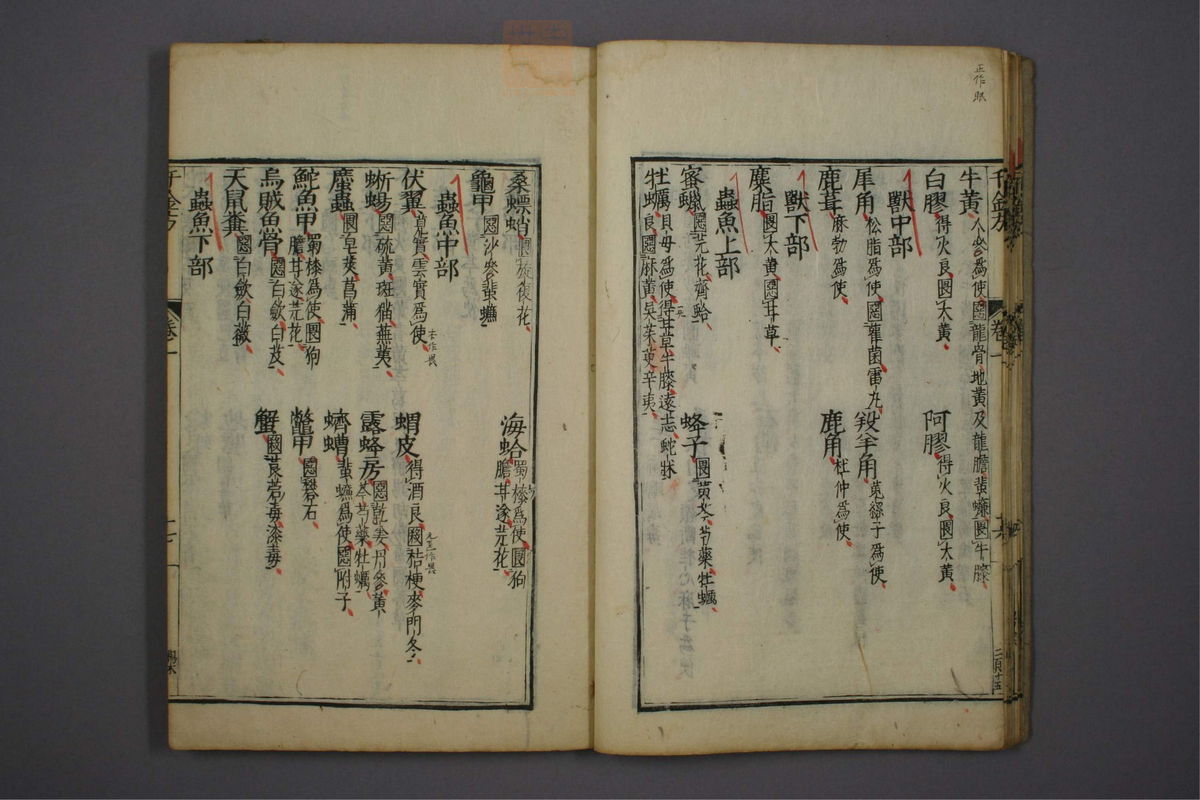 正作眠
牛黃人參爲使惡龍骨地黃及龍膽蜚蠊畏牛膝
白膠得火良畏大黃
阿膠得火良畏大黃
獸中部
犀角松脂爲使惡雚菌雷丸
羖羊角菟絲子爲使
鹿茸麻勃爲使
鹿角杜仲爲使
獸下部
麋脂畏大黃惡甘草
蟲魚上部
蜜蠟惡芫花齊蛤
蜂子畏黃芩芍藥牡蠣
牡蠣貝母爲使得甘草牛膝遠志蛇牀
良惡麻黃吳茱萸辛夷
桑螵蛸畏旋復花
海蛤蜀漆爲使畏狗
膽甘遂芫花
龜甲惡沙參蜚蠊
蟲魚中部
伏翼莧實雲實爲使
蝟皮得酒良畏桔梗麥門冬
蜥蜴惡硫黃斑猫蕪荑
露蜂房惡乾姜丹參黃
芩芍藥牡蠣
䗪蟲畏皂莢菖蒲
蠐螬蜚蠊爲使惡附子
鮀魚甲蜀漆爲使畏狗
膽甘遂芫花
鱉甲惡礬石
烏賊魚骨惡白歛白芨
蟹畏莨菪毒漆毒
天鼠糞惡白歛白薇
蟲魚下部
卷一
卷一